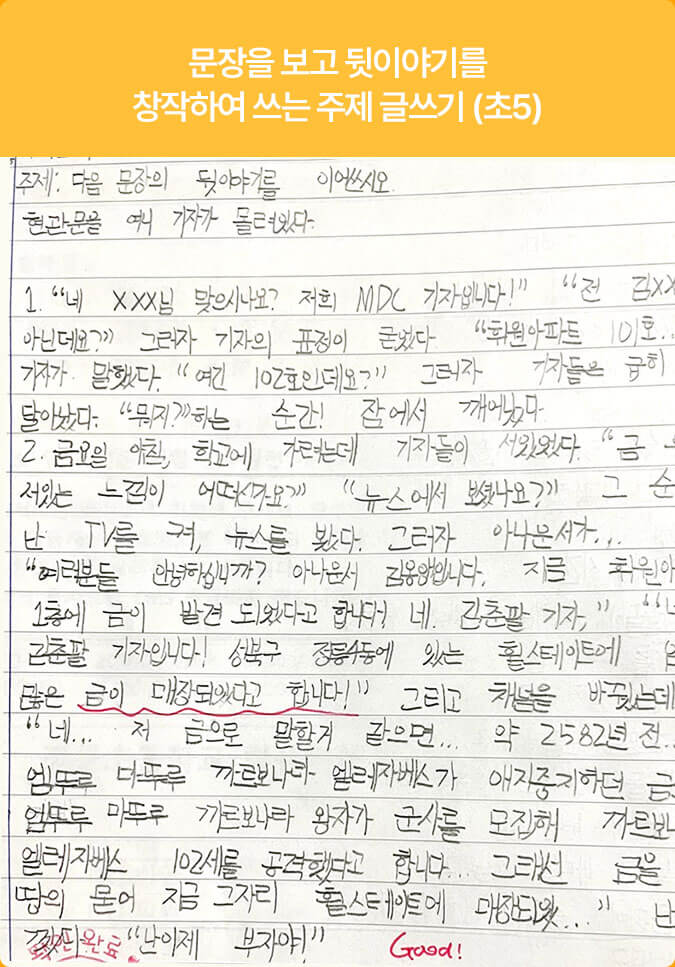 문장을 보고 뒷이야기를
창작하여 쓰는 주제 글쓰기 (초5)
주제: 다음 문장의 뒷이야기를 이어쓰시오.
현관문을 여니 기자가 몰려왔다.
1. “네 XXX님 맞으시나요? 저희 MDC 기자입니다!” “전 김XX
아닌데요?” 그러자 기자의 표정이 굳었다. “휘원아파트 101호...
기자가 말했다. “여긴 102호인데요?” 그러자 기자들은 급히
달아났다. “뭐지?”하는 순간! 잠에서 깨어났다.
2. 금요일 아침, 학교에 가려는데 기자들이 서있었다. “금
서있는 느낌이 어떠신가요?” “뉴스에서 보셨나요?” 그 순
난 TV를 켜, 뉴스를 봤다. 그러자 아나운서가...
“여러분들 안녕하십니까? 아나운서 김용앙입니다. 지금 휘원아
1층에 금이 발견 되었다고 합니다! 네. 김춘팔 기자,” “
김춘팔 기자입니다! 성북구 정릉4동에 있는 횔스테이트에
많은 금이 매장되있다고 합니다!” 그리고 채널을 바꿨는데
“네... 저 금으로 말할거 같으면... 약 2582년 전..
엠뚜루 마뚜루 까르보나라 엘레자베스가 애지중지하던 금
엠뚜루 마뚜루 까르보나라 왕자가 군사를 모집해 까르보나
엘레자베스 102세를 공격했다고 합니다... 그래선 금을
땅의 묻어 지금 그자리 횔스테이트에 매장되있...” 난
“난이제 부자야!” Good!
완료